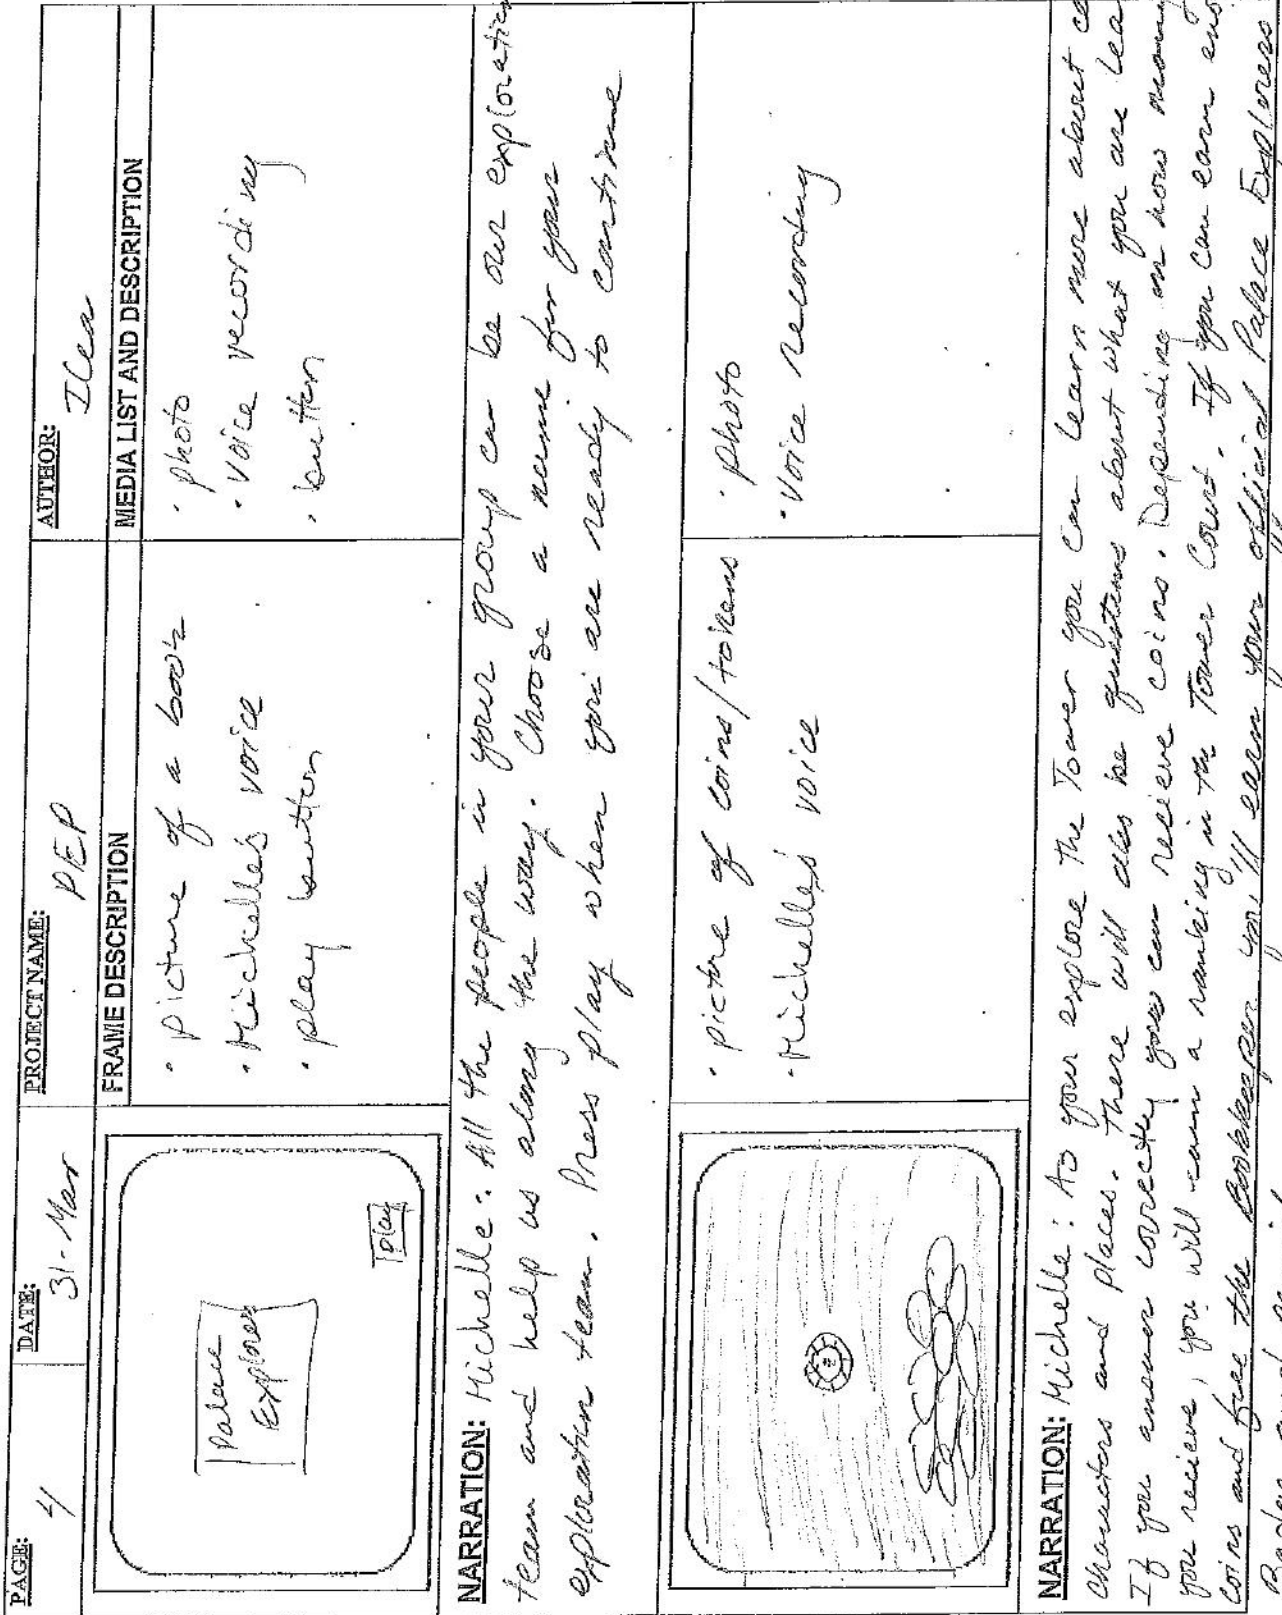 PAGE: 4
DATE: 31-Mar
PROJECT NAME: PEP
AUTHOR: Ilea
FRAME DESCRIPTION
MEDIA LIST AND DESCRIPTION
Palace
Explorer
Play
· picture of a book
· Michelle's voice
· play button
· photo
· voice recording
· button
NARRATION: Michelle: All the people in your group can be our exploration
team and help us along the way. Choose a name for your
exploration team. Press play when you are ready to continue
· picture of coins/tokens
· Michelle's voice
· photo
· Voice recording
NARRATION: Michelle: As your explore the Tower you can learn more about
characters and places. There will also be questions about what you are
If you answer correctly you can recieve coins. Depending on how many
you recieve, you will earn a ranking in the Tower Court. If you can earn
coins and free the Bookkeeper you'll earn your official Palace Explorers
Badge and